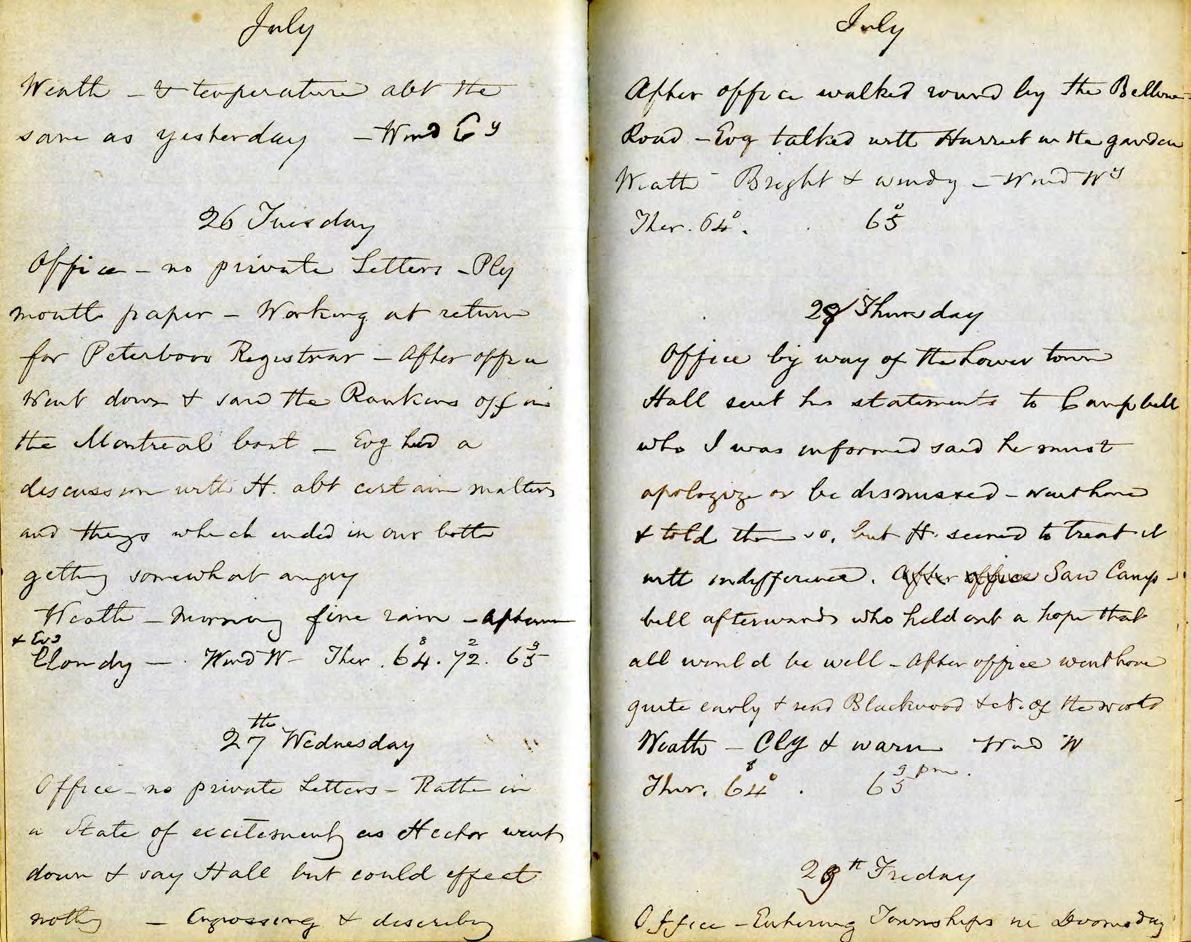 July
Weath - & temperature abt the
same as yesterday - Wind Ey
26 Tuesday
Office - no private Letters - Ply
mouth paper - Working at return
for Peterboro Registrar - After office
Went down & saw the Rankins off in
the Montreal boat - Evg had a
discussion with H. abt certain matters
and things which ended in our both
getting somewhat angry
Weath - Morning fine rain - Aftern
& Evg
Cloudy - Wind W - Ther. 64. 72. 65
27th Wednesday
Office - no private Letters - Rather in
a State of excitement as Hector went
down & say Hall but could effect
nothg - Engrossing & describg
July
After office walked round by the
Road - Evg talked with Harriet in the garden
Weath - Bright & windy - Wind Wy
Ther. 64°. 65°
28 Thursday
Office by way of the Lower town
Hall sent his statements to Campbell
who I was informed said he must
apologize or be dismissed - went home
& told them so, but H. seemed to treat it
with indifference. After office Saw Camp-
bell afterwards who held out a hope that
all would be well - After office went home
quite early & read Blackwood & of the world
Weath - Cly & warm Wind W
8 9 pm.
Ther. 64°. 65
29th Friday
Office - Entering Townships in Doomsday